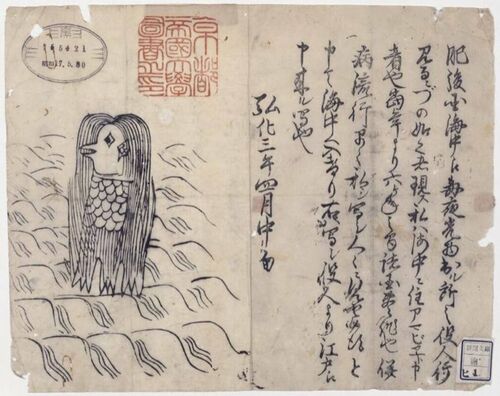 肥後国海中江毎夜光物出ル所之役人行
見るニづの如之者現ス私ハ海中ニ住アマビヱト申
者也当年より六ヶ年之間諸国豊作也併
病流行早々私ヲ写シ人々ニ見セ候得と
申て海中へ入けり右写シ役人より江戸江
申来ル写也
弘化三年四月中旬
京都
帝國大學
圖書之印